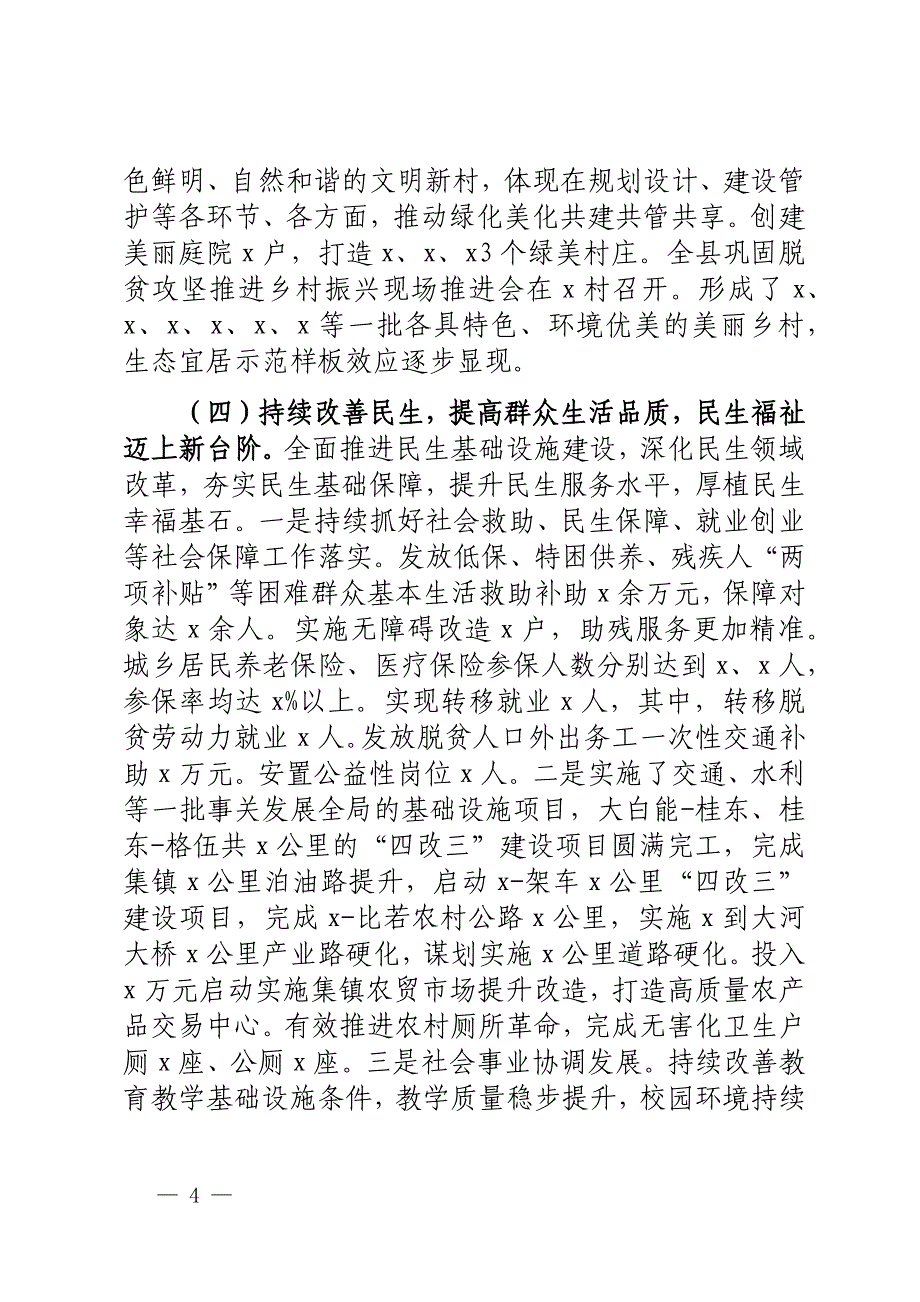 色鲜明、自然和谐的文明新村，体现在规划设计、建设管
护等各环节、各方面，推动绿化美化共建共管共享。创建
美丽庭院 x 户，打造 x、x、x3 个绿美村庄。全县巩固脱
贫攻坚推进乡村振兴现场推进会在 x 村召开。形成了 x、
x、x、x、x、x 等一批各具特色、环境优美的美丽乡村，
生态宜居示范样板效应逐步显现。
（四）持续改善民生，提高群众生活品质，民生福祉
迈上新台阶。全面推进民生基础设施建设，深化民生领域
改革，夯实民生基础保障，提升民生服务水平，厚植民生
幸福基石。一是持续抓好社会救助、民生保障、就业创业
等社会保障工作落实。发放低保、特困供养、残疾人“两
项补贴”等困难群众基本生活救助补助 x 余万元，保障对
象达 x 余人。实施无障碍改造 x 户，助残服务更加精准。
城乡居民养老保险、医疗保险参保人数分别达到 x、x 人，
参保率均达 x%以上。实现转移就业 x 人，其中，转移脱
贫劳动力就业 x 人。发放脱贫人口外出务工一次性交通补
助 x 万元。安置公益性岗位 x 人。二是实施了交通、水利
等一批事关发展全局的基础设施项目，大白能-桂东、桂
东-格伍共 x 公里的“四改三”建设项目圆满完工，完成
集镇 x 公里泊油路提升，启动 x-架车 x 公里“四改三”
建设项目，完成 x-比若农村公路 x 公里，实施 x 到大河
大桥 x 公里产业路硬化，谋划实施 x 公里道路硬化。投入
x 万元启动实施集镇农贸市场提升改造，打造高质量农产
品交易中心。有效推进农村厕所革命，完成无害化卫生户
厕 x 座、公厕 x 座。三是社会事业协调发展。持续改善教
育教学基础设施条件，教学质量稳步提升，校园环境持续
— 4 —